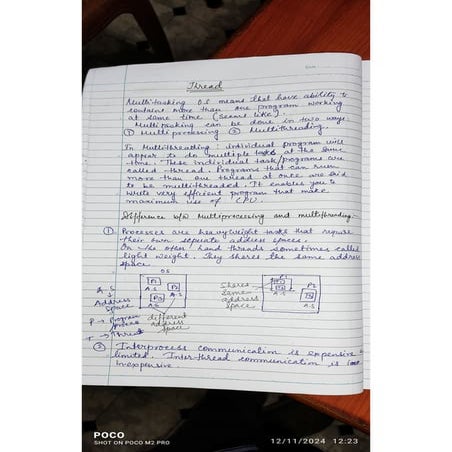 Thread
Multitasking O.S means that have ability to
contains more than one program working
at same time (seems like).
Multitasking can be done in two ways.
① Multiprocessing ② Multithreading.
In Multithreading: individual program will
appear to do multiple tasks at the same
time. These individual task/programs are
called thread. Programs that can run
more than one thread at once are said
to be multithreaded. It enables you to
write very efficient program that make
maximum use of CPU.
Difference b/w Multiprocessing and multithreading.
① Processes are heavyweight tasks that require
their own seperate address spaces.
On the other hand threads sometimes called
light weight. They shares the same address
space.
OS
P1
A.S
P2
A.S
P3
A.S
A.S
Address
Space
P → Program
Process
T → Thread
different
address
space
Shares
same
address
space
A.S
A.S
② Interprocess communication is expensive &
limited. Inter-thread communication is
inexpensive.
POCO
SHOT ON POCO M2 PRO
12/11/2024 12:23